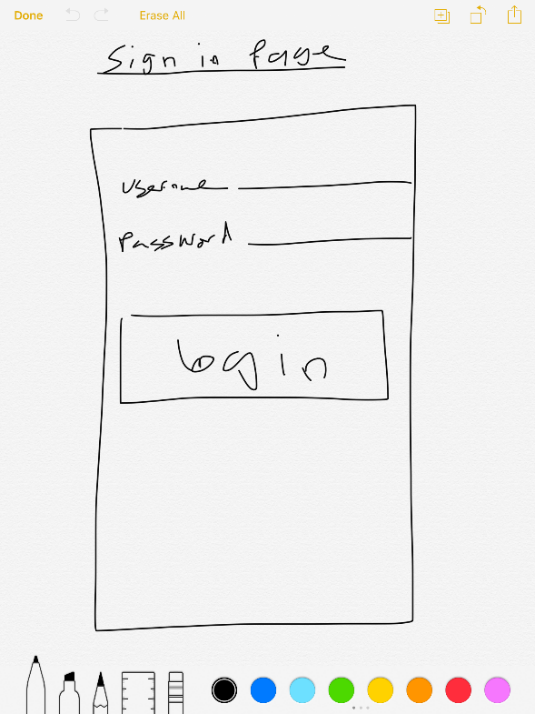 Done Erase All
Sign in Page
Username
Password
login